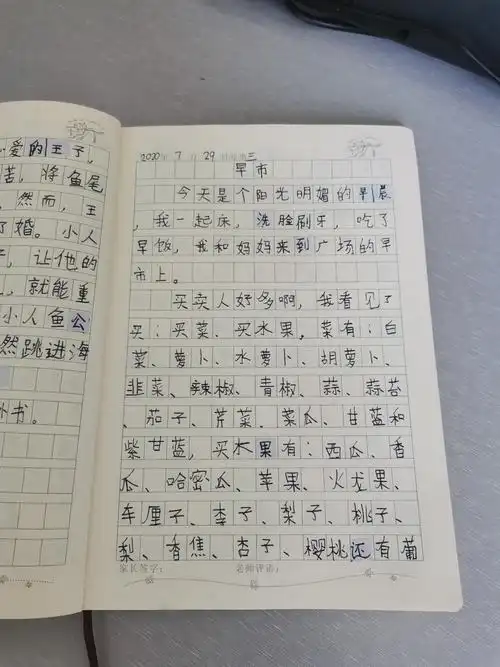 爱的王子，
苦，将鱼尾
，然而，王
了婚。小人
，让他的
，就能重
小人鱼公
然跳进海
书。
2020年7月29日星期三
早市
今天是个阳光明媚的早晨
，我一起床，洗脸刷牙，吃了
早饭，我和妈妈来到广场的早
市上。
买卖人好多啊，我看见了
买：买菜、买水果，菜有：白
菜、萝卜、水萝卜、胡萝卜、
韭菜、辣椒、青椒、蒜、蒜苔
、茄子、芹菜、菜瓜、甘蓝和
紫甘蓝，买水果有：西瓜、香
瓜、哈密瓜、苹果、火龙果、
车厘子、李子、梨子、桃子、
梨、香焦、杏子、樱桃还有葡
家长签字： 老师评语：